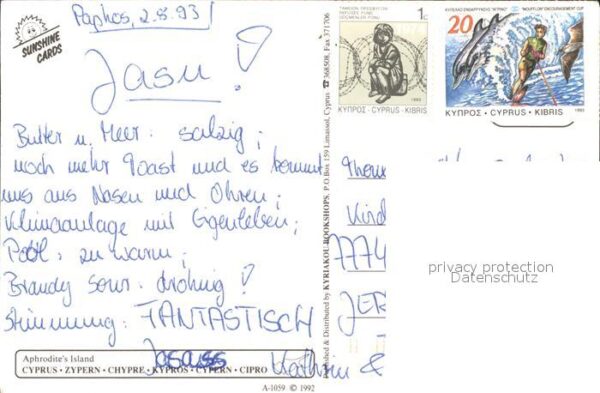 Paphos, 2.8.93
SUNSHINE CARDS
Jasu!
Butter u. Meer: salzig;
noch mehr Toast und es kommt
uns aus Nasen und Ohren;
Klimaanlage mit Eigenleben;
Pool: zu warm;
Brandy sour: dröhnig!
Stimmung: FANTASTISCH
Jasuss
Kathrin &
Aphrodite's Island
CYPRUS · ZYPERN · CHYPRE · KYPROS · CYPERN · CIPRO
A-1059 © 1992
Published & Distributed by KYRIAKOU BOOKSHOPS, P.O.Box 159 Limassol, Cyprus ☎ 368508, Fax 371706
1c
REFUGEE FUND
GÖÇMENLER FONU
ΚΥΠΡΟΣ · CYPRUS · KIBRIS
1993
20
"MOUFFLON" ENCOURAGEMENT CUP
ΚΥΠΡΟΣ · CYPRUS · KIBRIS
1993
Kind
7774
privacy protection
Datenschutz